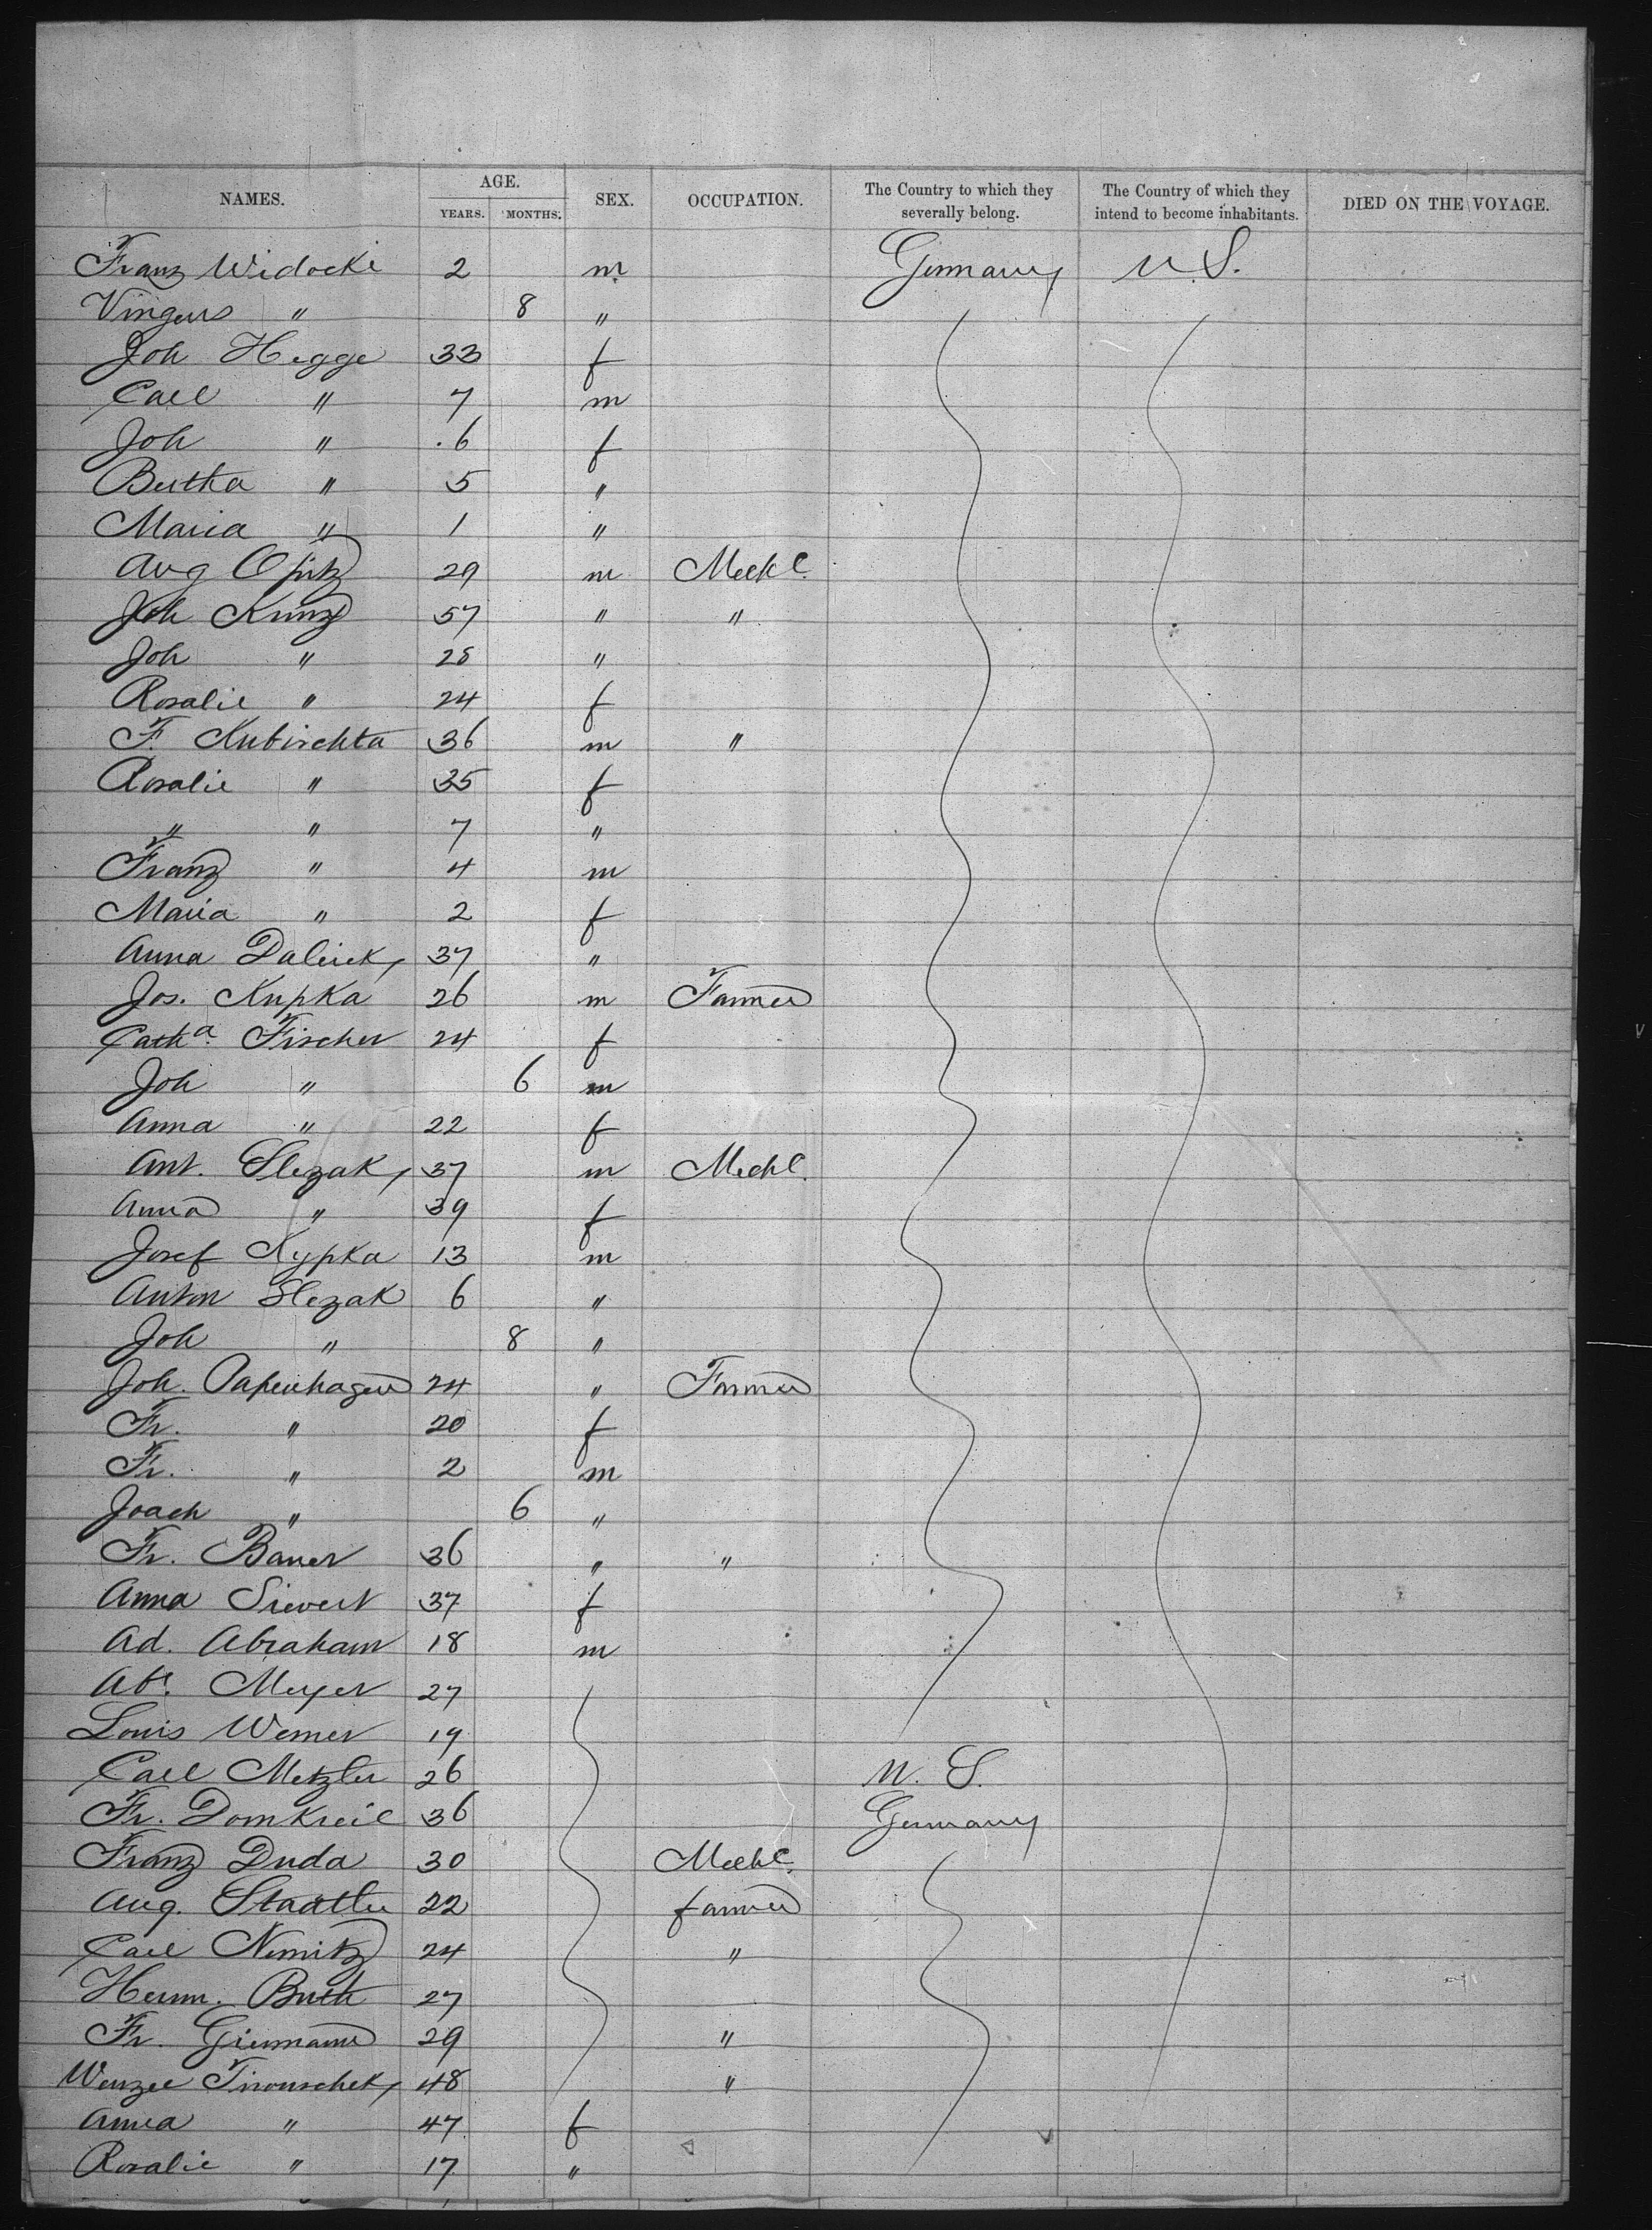 NAMES. AGE. SEX. OCCUPATION. The Country to which they severally belong. The Country of which they intend to become inhabitants. DIED ON THE VOYAGE.
YEARS. MONTHS.
Franz Widocki 2 m Germany U.S.
Vingers " 8 "
Joh Hegge 33 f
Carl " 7 m
Joh " 6 f
Bertha " 5 "
Maria " 1 "
Aug Opitz 29 m Mechc.
Joh Kunz 57 " "
Joh " 28 "
Rosalie " 24 f
F. Kubischta 36 m "
Rosalie " 35 f
" " 7 "
Franz " 4 m
Maria " 2 f
Anna Daleick 37 "
Jos. Kupka 26 m Farmer
Catha. Fischer 24 f
Joh " 6 m
Anna " 22 f
Ant. Slezak 37 m Mechc.
Anna " 39 f
Josef Kypka 13 m
Anton Slezak 6 "
Joh " 8 "
Joh. Papenhagen 24 " Farmer
Fr. " 20 f
Fr. " 2 m
Joach " 6 "
Fr. Bauer 36 " "
Anna Sievert 37 f
Ad. Abraham 18 m
Ab. Meyer 27
Louis Werner 19
Carl Metzler 26 U.S.
Fr. Domkreil 36 Germany
Franz Duda 30 Mechc.
Aug. Staatler 22 farmer
Carl Nemitz 24 "
Herm. Buth 27
Fr. Giermann 29 "
Wenzel Tirouschek 48 "
Anna " 47 f
Rosalie " 17 "